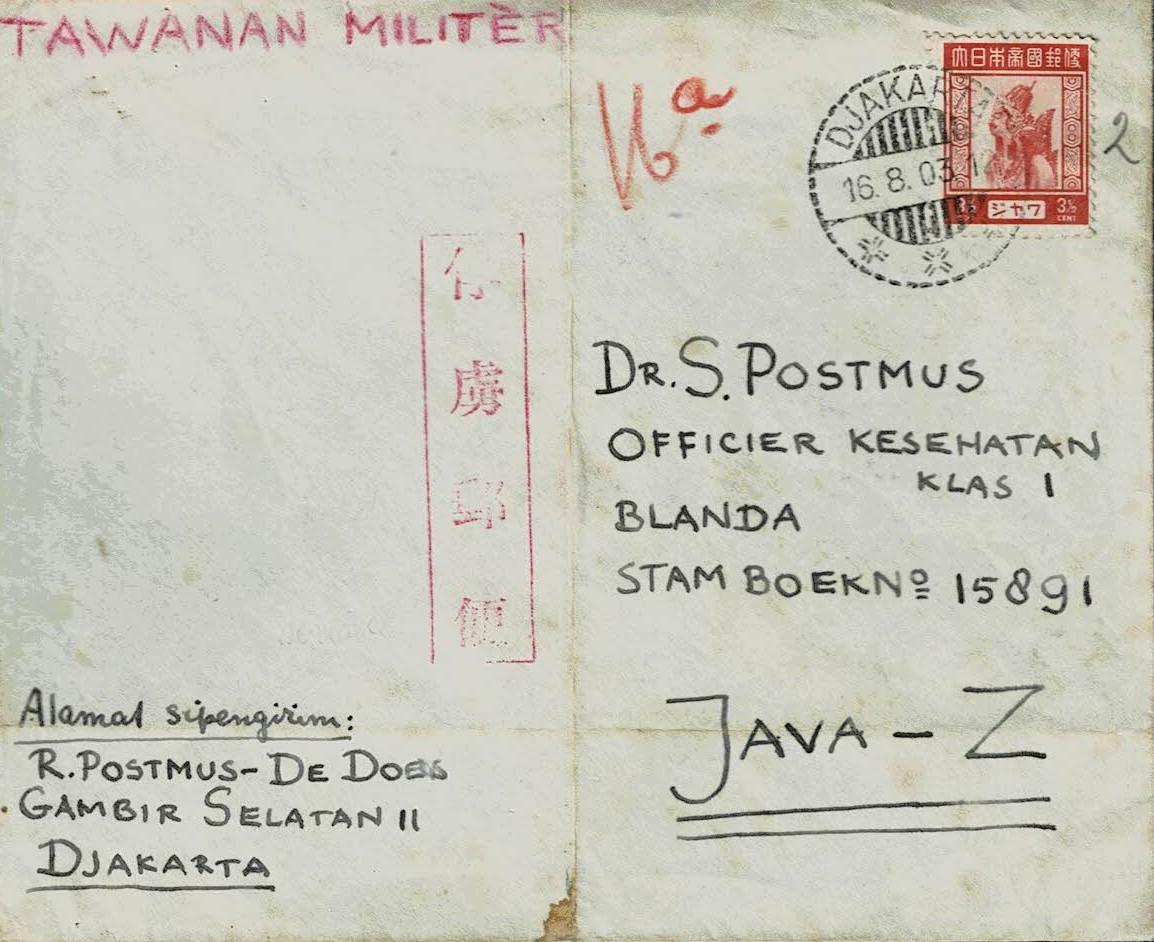 TAWANAN MILITÈR
大日本帝國郵便
DJAKARTA
16.8.03.14
ジヤワ 3½
CENT
2
俘虜郵便
DR. S. POSTMUS
OFFICIER KESEHATAN
KLAS I
BLANDA
STAMBOEKNº 15891
JAVA - Z
Alamat sipengirim:
R. POSTMUS - DE DOES
GAMBIR SELATAN 11
DJAKARTA